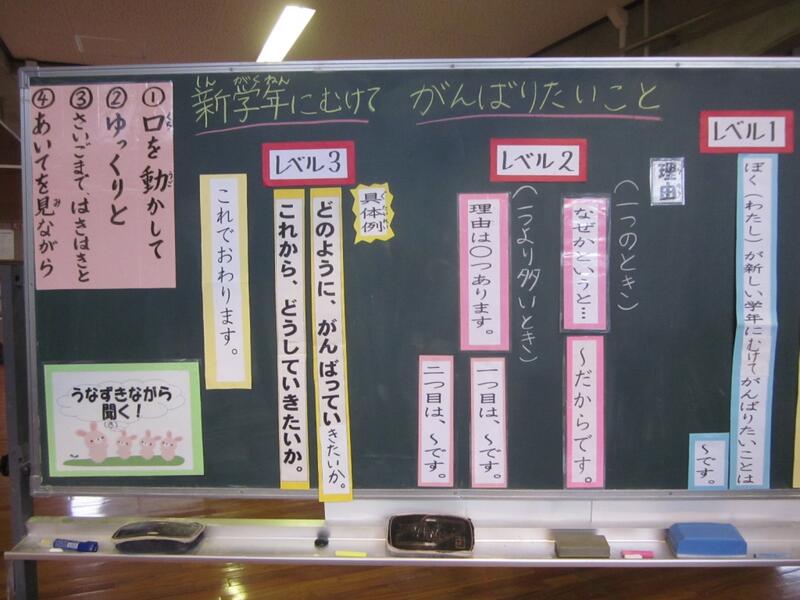 新学年にむけて がんばりたいこと
しん がくねん
レベル1
ぼく(わたし)が新しい学年にむけてがんばりたいことは
~です。
理由
りゆう
(一つのとき)
なぜかというと…
~だからです。
レベル2
(一つより多いとき)
理由は〇つあります。
一つ目は、~です。
二つ目は、~です。
レベル3
具体例
ぐたいれい
どのように、がんばっていきたいか。
これから、どうしていきたいか。
これでおわります。
①口を動かして
くち うご
②ゆっくりと
③さいごまで、はきはきと
④あいてを見ながら
み
うなずきながら
聞く!
(き)